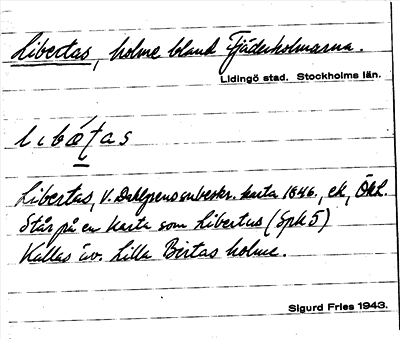 Libertas, holme bland Fjäderholmarna.
Lidingö stad. Stockholms län.
Libertas, V. Dahlgrens karta 1846,
Står på en karta som Libertus (Spk 5)
Kallas äv. Lilla Bertas holme.
Sigurd Fries 1943.